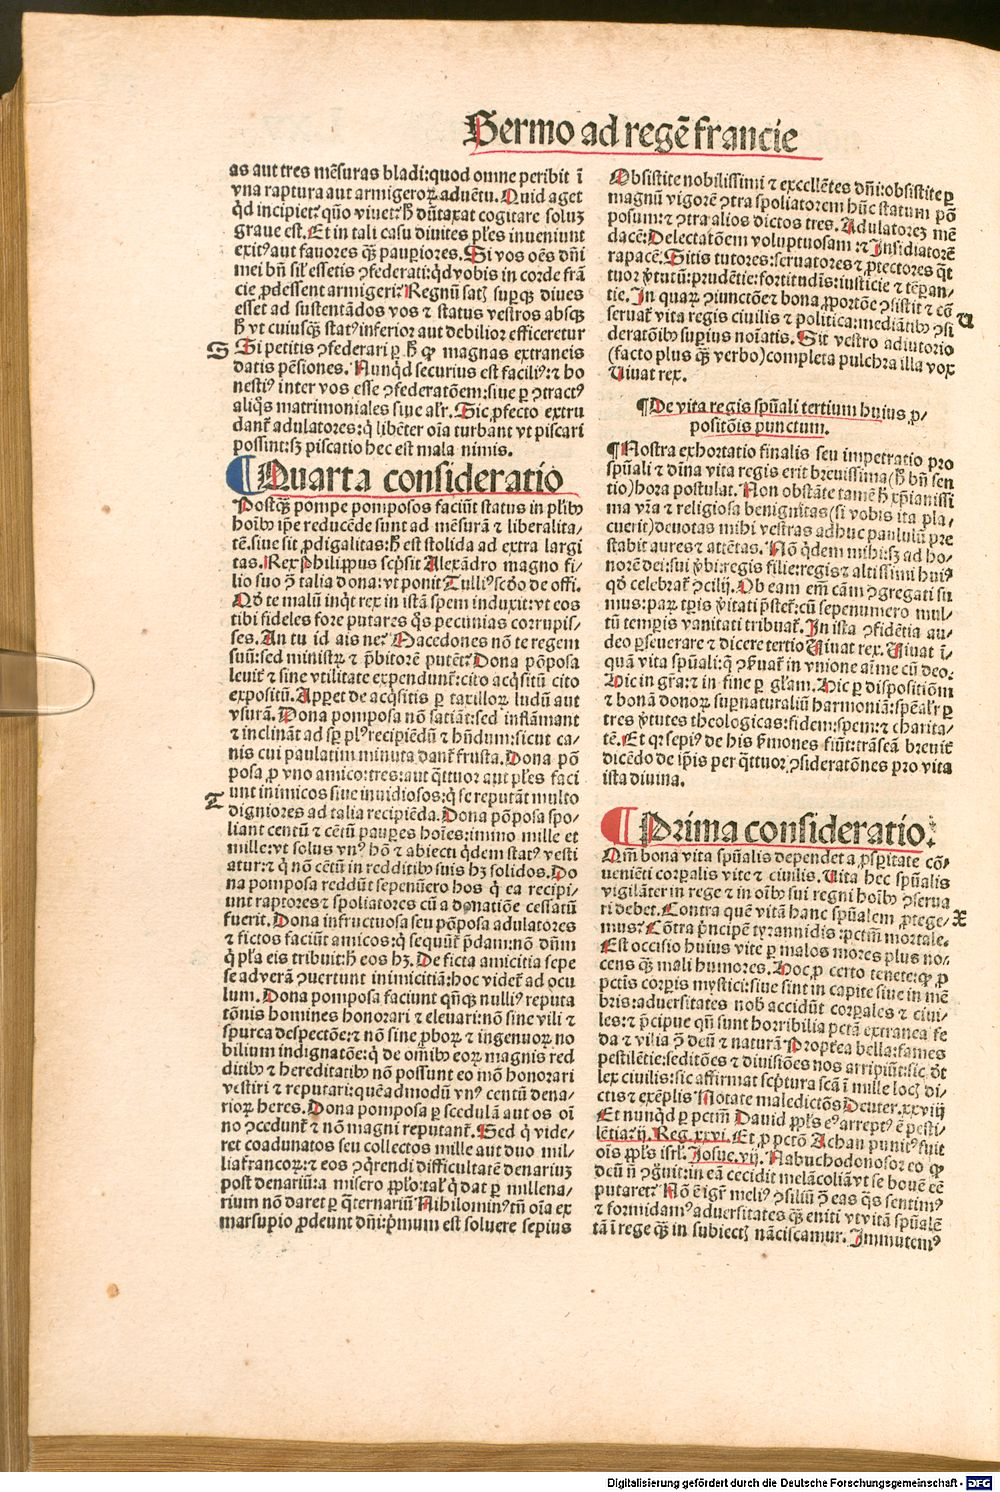 Sermo ad regē francie
as aut tres mēsuras bladi:quod omne peribit ī
vna raptura aut armigeroꝝ aduētu. Quid aget
qͥd incipiet? quō viuet? h̄ dūtaxat cogitare soluꝫ
graue est. Et in tali casu diuites pl̄es inueniunt
exitꝰ aut fauores qꝫ̄ pauꝑiores. Si vos oēs dn̄i
mei bn̄ sil̓ essetis ꝯfederati: qͥd vobis in corde frā
cie ꝓdessent armigeri? Regnū satꝭ suꝑqꝫ diues
esset ad sustentādos vos ⁊ status vestros absqꝫ
h̄ vt cuiusqꝫ̄ statꝰ inferior aut debilior efficeretur
S
Si petitis ꝯfederari ꝑ h̄ ꝙ magnas extraneis
datis pēsiones. Nunqͥd securius est faciliꝰ:⁊ ho
nestiꝰ inter vos esse ꝯfederatōem:siue ꝑ ꝯtractꝰ
aliqͦs matrimoniales siue alr̄. Sic ꝓfecto extru
dant᷑ adulatores: qͥ libēter oīa turbant vt piscari
possint: sꝫ piscatio hec est mala nimis.
¶ Quarta consideratio
Postqꝫ̄ pompe pomposos faciūt status in pl̓ibꝰ
hoībꝰ ip̄e reducēde sunt ad mēsurā ⁊ liberalita-
tē. siue sit ꝓdigalitas: h̄ est stolida ad extra largi
tas. Rex Philippus scp̄sit Alexādro magno fi-
lio suo ꝯ̄ talia dona: vt ponit Tulliꝰ scd̓o de offi.
Qd̓ te malū inqͥt rex in istā spem induxit: vt eos
tibi fideles fore putares qͦs pecunias corrupis-
ses. An tu id ais ne? Macedones nō te regem
suū: sed ministrꝝ ⁊ p̄bitorē putēt? Dona pōposa
leuit᷑ ⁊ sine vtilitate expendunt᷑: cito acqͥsitū cito
expositū. Apꝑet de acqͥsitis ꝑ taxilloꝝ ludū aut
vsurā. Dona pomposa nō satiāt: sed inflāmant
⁊ inclināt ad sꝑ plꝰ recipiēdū ⁊ hn̄dum: sicut ca-
nis cui paulatim minuta dant᷑ frusta. Dona pō
posa ꝓ vno amico: tres: aut qͣttuor aut pl̄es faci
T
unt inimicos siue inuidiosos: qͥ se reputāt multo
digniores ad talia recipiēda. Dona pōposa spo-
liant centū ⁊ cētū pauꝑes hoīes: immo mille et
mille: vt solus vnꝰ hō ⁊ abiecti qͥdem statꝰ vesti
atur: ⁊ qͥ nō cētū in redditibꝰ suis hꝫ solidos. Do
na pomposa reddūt sepenūero hos qͥ ea recipi-
unt raptores ⁊ spoliatores cū a donatiōe cessatū
fuerit. Dona infructuosa seu pōposa adulatores
⁊ fictos faciūt amicos: qͥ sequūt᷑ p̄dam: nō dn̄m
qͥ pl̓a eis tribuit: h̄ eos hꝫ. De ficta amicitia sepe
se ad verā ꝯuertunt inimicitiā: hoc videt᷑ ad ocu
lum. Dona pomposa faciunt qn̄qꝫ nulliꝰ reputa
tōnis homines honorari ⁊ eleuari: nō sine vili ⁊
spurca despectōe: ⁊ nō sine ꝓboꝝ ⁊ ingenuoꝝ no
bilium indignatōe: qͥ de om̄ibꝰ eoꝝ magnis red
ditibꝰ ⁊ hereditatibꝰ nō possunt eo mō honorari
vestiri ⁊ reputari: quēadmodū vnꝰ centū dena-
rioꝝ heres. Dona pomposa ꝑ scedulā aut os oī
no ꝯcedunt᷑ ⁊ nō magni reputant᷑. Sed qͥ vide-
ret coadunatos seu collectos mille aut duo mil-
lia francoꝝ: ⁊ eos ꝯqͥrendi difficultatē denariuꝫ
post denariū: a misero ꝓplo: tal̓ qͥ dat ꝑ millena-
rium nō daret ꝑ qͣternariū Nihilominꝰ tn̄ oīa ex
marsupio ꝓdeunt dn̄i: p̄mum est soluere sepius
Obsistite nobilissimi ⁊ excellētes dn̄i: obsistite ꝑ
magnū vigorē ꝯtra spoliatorem hūc statum pō
posum: ⁊ ꝯtra alios dictos tres. Adulatoreꝫ mē
dacē: Delectatōem voluptuosam: ⁊ Insidiatorē
rapacē. Sitis tutores: seruatores ⁊ ꝓtectores qͣt
tuor v̓tutū: prudētie: fortitudīs: iusticie ⁊ tēꝑan-
tie. In quaꝝ ꝯiunctōe ⁊ bona ꝓportōe ꝯsistit ⁊ cō
seruat᷑ vita regis ciuilis ⁊ politica: mediātibꝰ ꝯsi
U
deratōibꝰ suꝑius noīatis. Sit vestro adiutorio
(facto plus qꝫ̄ verbo) completa pulchra illa vox
Uiuat rex.
¶ De vita regis spūali tertium huius ꝓ-
positōis punctum.
¶ Nostra exhortatio finalis seu impetratio pro
spūali ⁊ diīna vita regis erit breuissima (h̄ bn̄ sen
tio) hora postulat. Non obstāte tamē h̄ xp̄ianissi
ma vr̄a ⁊ religiosa benignitas (si vobis ita pla-
cuerit) deuotas mihi vestras adhuc paululū pre
stabit aures ⁊ attētas. Nō qͥdem mihi: sꝫ ad ho-
norē dei: sui v̓bi: regis filie: regis ⁊ altissimi huiꝰ
qd̓ celebrat᷑ ꝯcilij. Ob eam em̄ cām ꝯgregati su
mus: paꝝ tꝑis v̓itati p̄stet᷑: cū sepenumero mul-
tū temꝑis vanitati tribuat᷑. In ista ꝯfidētia au-
deo ꝑseuerare ⁊ dicere tertio Uiuat rex. Uiuat ī-
quā vita spūali: qͥ ꝯẜuat᷑ in vnione aīme cū deo:
Hic in gr̄a: ⁊ in fine ꝑ gl̄am. Hic ꝑ dispositiōm
⁊ bonā donoꝝ suꝑnaturaliū harmoniā: spēalr̄ ꝑ
tres v̓tutes theologicas: fidem: spem: ⁊ charita-
tē. Et qꝛ sepiꝰ de his ẜmones fiūt: trāseā breuit᷑
dicēdo de ip̄is per qͣttuor ꝯsideratōnes pro vita
ista diuina.
¶ Prima consideratio.
Qm̄ bona vita spūalis dependet a ꝓsꝑitate cō-
ueniēti corꝑalis vite ⁊ ciuilis. Uita hec spūalis
vigilāter in rege ⁊ in oībꝰ sui regni hoībꝰ ꝯserua
ri debet. Contra quē vitā hanc spūalem ꝓtege-
X
mus? Cōtra p̄ncipē tyrannidis: pctm̄ mortale.
Est occisio huius vite ꝑ malos mores plus no-
cens qꝫ̄ mali humores. Hoc ꝓ certo tenete: ꝙ ꝓ
pctis corꝑis mystici: siue sint in capite siue in mē
bris: aduersitates nob̓ accidūt corꝑales ⁊ ciui-
les: ⁊ p̄cipue qn̄ sunt horribilia pctā extranea fe
da ⁊ vilia ꝯ̄ deū ⁊ naturā Propt̓ea bella: fames
pestilētie: seditōes ⁊ diuisiōes nos arripiūt: sic dt̄
lex ciuilis: sic affirmat scp̄tura scā ī mille locꝭ di-
ctis ⁊ exēplis Notate maledictōs Deuter. xxviij
Et nunqͥd ꝑ pctm̄ Dauid ꝓpl̓s eꝰ arreptꝰ ē pesti-
lētia? ij. Reg. xxvi. Et ꝓ pctō Achan punitꝰ fuit
oīs ꝓpl̓s isrl̓. Iosue. vij. Nabuchodonosor eo ꝙ
deū nō ꝯgnuit: in eā cecidit melācoliā vt se bouē eē
putaret? Nō ē igr̄ meliꝰ ꝯsiliū ꝯ̄ eas qͣs sentimꝰ
⁊ formidamꝰ aduersitates qꝫ̄ eniti vt vitā spūalē
tā ī rege qꝫ̄ in subiectꝭ nāciscamur. Immutemꝰ
Digitalisierung gefördert durch die Deutsche Forschungsgemeinschaft - DFG